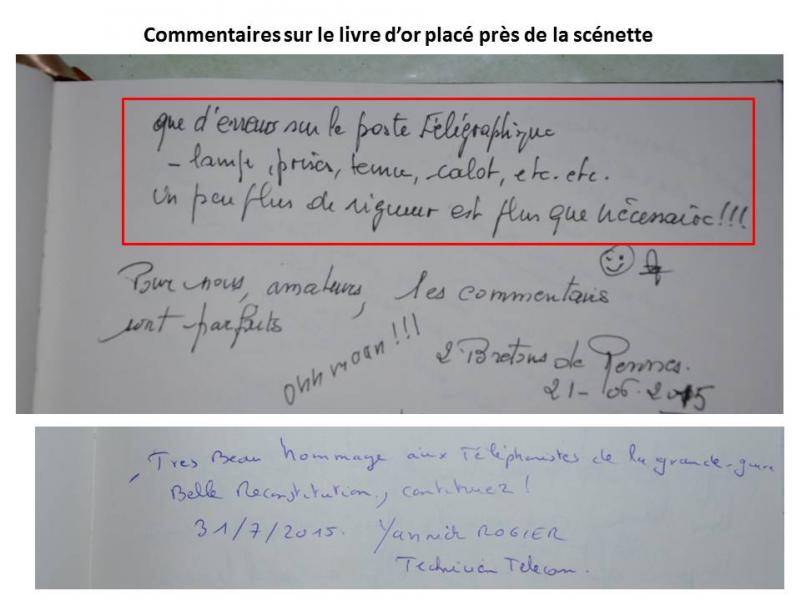 Commentaires sur le livre d'or placé près de la scénette
que d'erreurs sur le poste Télégraphique
- lampe, prises, tenue, calot, etc. etc.
Un peu plus de rigueur est plus que nécessaire!!!
Pour nous, amateurs, les commentaires
sont parfaits
Ohh maan!!!
2 Bretons de Rennes.
21-06-2015
Tres Beau hommage aux Téléphonistes de la grande-guerre
Belle Reconstitution, continuez!
31/7/2015. Yannick ROGIER
Technicien Telecom.